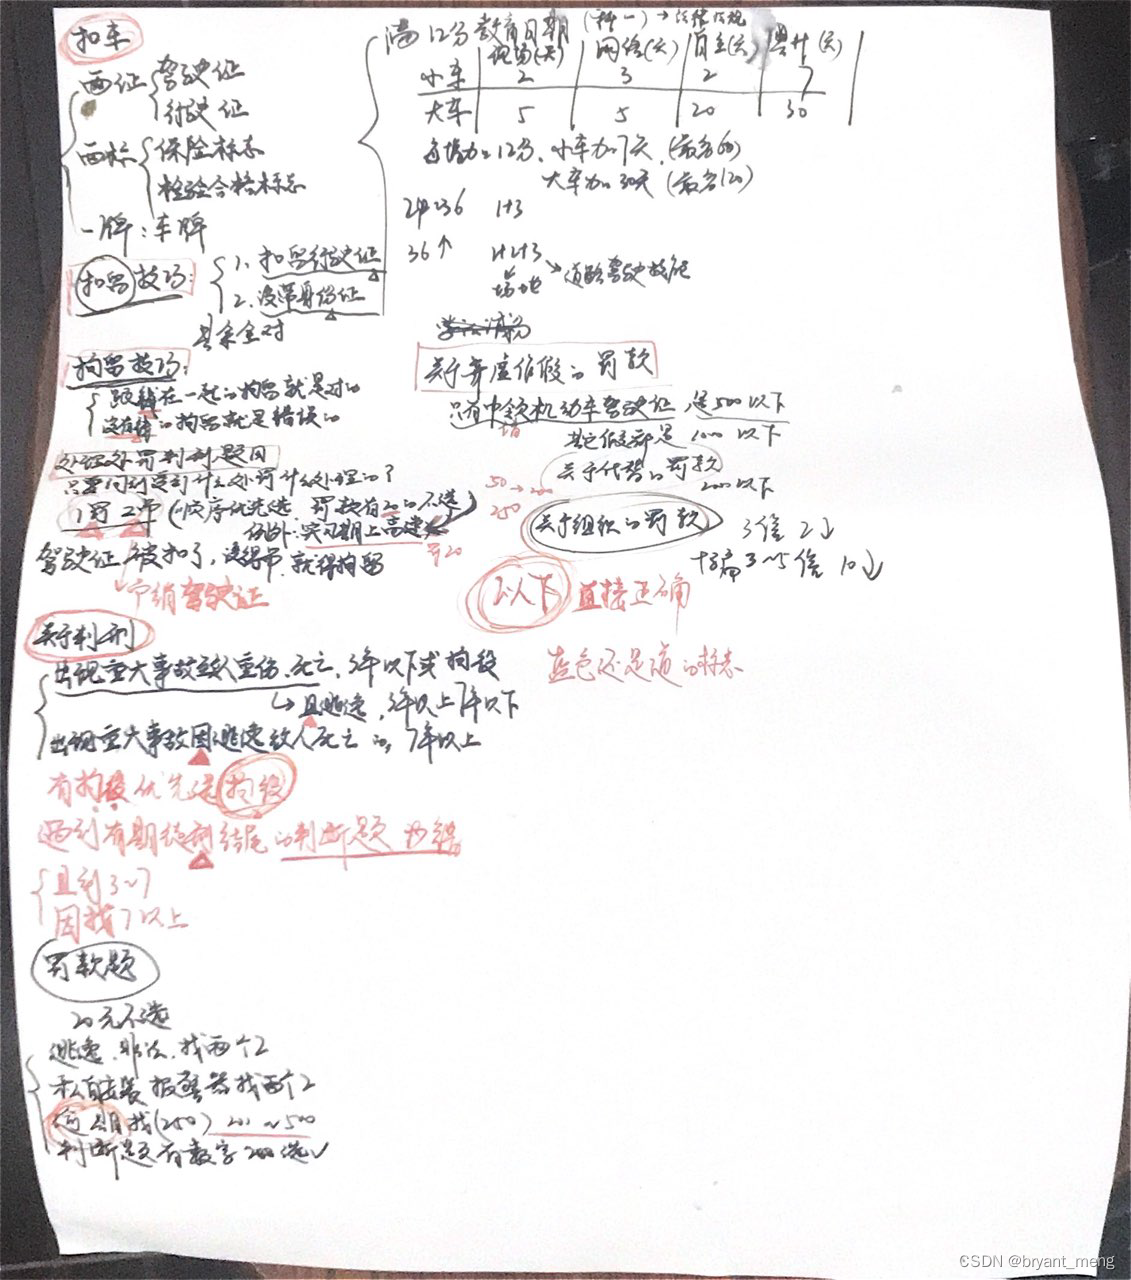 扣车
两证
驾驶证
行驶证
两标
保险标志
检验合格标志
一牌：车牌
扣留技巧：
1. 扣留行驶证
2. 没带身份证
其余全对
拘留技巧：
跟钱在一起的拘留就是对的
没有钱的拘留就是错误的
处理处罚判刑题目
只要问到受到什么处罚什么处理的？
1罚 2吊 (顺序优先选 罚款有20的不选)
例外：实习期上高速 罚20
驾驶证被扣了，没得吊，就得拘留
吊销驾驶证
关于判刑
出现重大事故致人重伤、死亡，3年以下或拘役
且逃逸，3年以上7年以下
出现重大事故因逃逸致人死亡的，7年以上
有拘役优先选拘役
遇到有期徒刑结尾的判断题 为错
且到3~7
因找7以上
罚款题
20元不选
逃逸、非法、找两个2
私自安装报警器找两个2
找(250) 200~500
判断题有数字200选√
满12分教育日期 (科一)→法律法规
现场(天) 网络(天) 自主(天) 累计(天)
小车 2 3 2 7
大车 5 5 20 30
每增加12分、小车加7天 (最多60)
大车加30天 (最多120)
24~36 1+3
36↑ 1+2+3
场地→道路驾驶技能
学法减分
关于弄虚作假的罚款
只有申领机动车驾驶证 是500以下
其它假都是1000以下
关于代替的罚款
200以下
50→200
250
关于组织的罚款
3倍 2↓
3~5倍 10↓
2以下 直接正确
蓝色还是道的标志
CSDN @bryant_meng